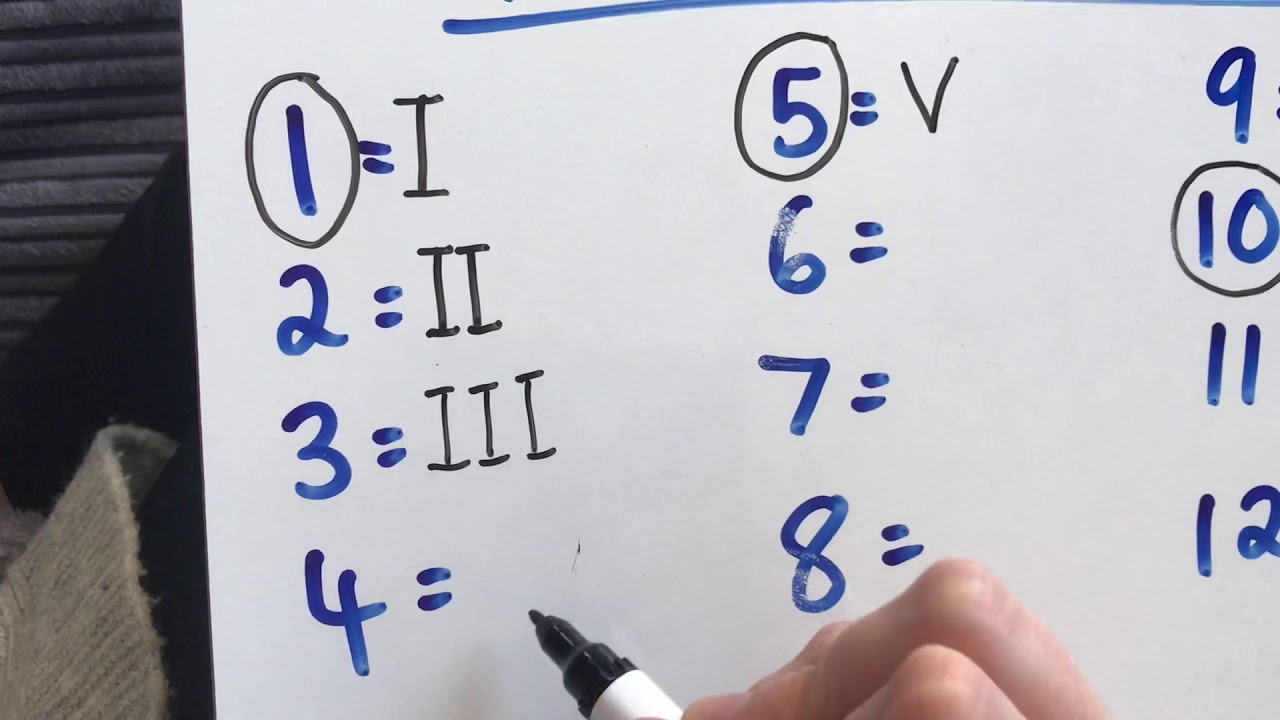 1 = I
2 = II
3 = III
4 =
5 = V
6 =
7 =
8 =
9
10
11
12